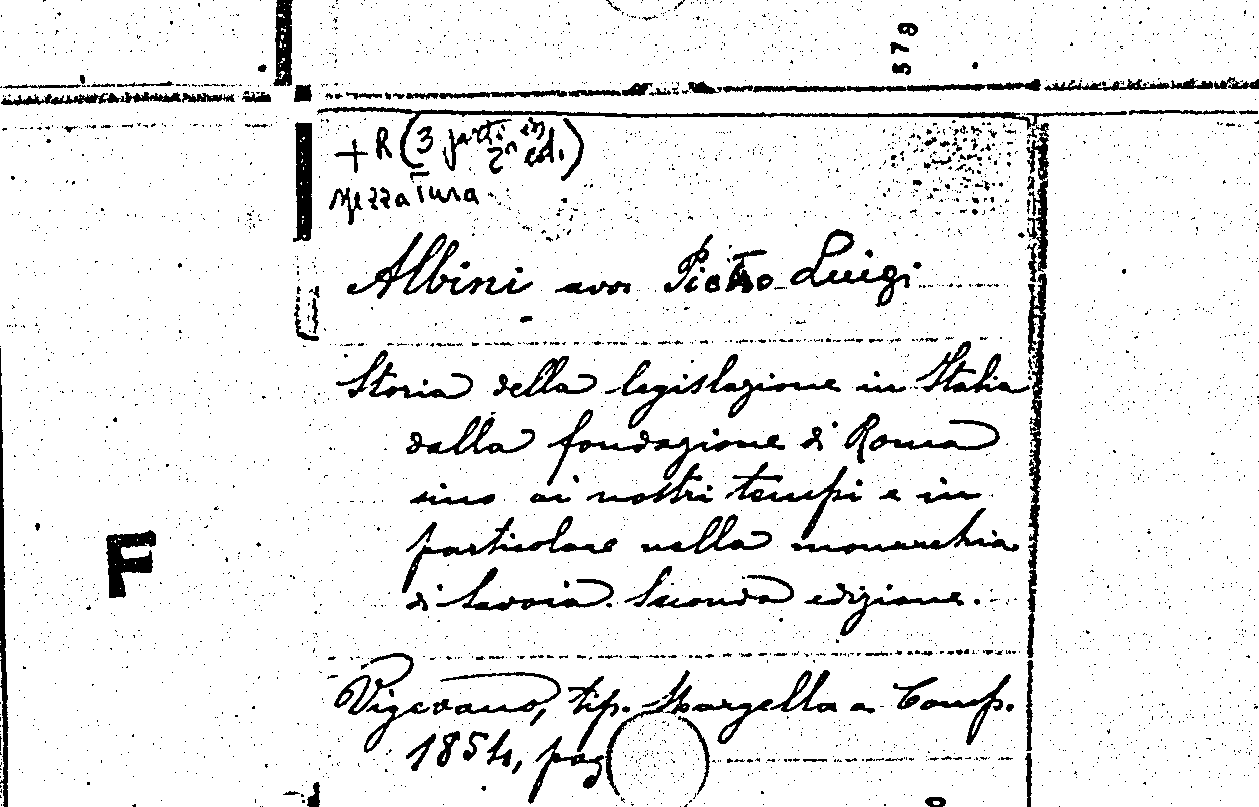 579
+ R (3 parti in
2ª ed.)
Mezzatura
Albini avv. Pietro Luigi
Storia della legislazione in Italia
dalla fondazione di Roma
sino ai nostri tempi e in
particolare nella monarchia
di Savoia. Seconda edizione.
F
Vigevano, tip. Marzella e Comp.
1854, pag